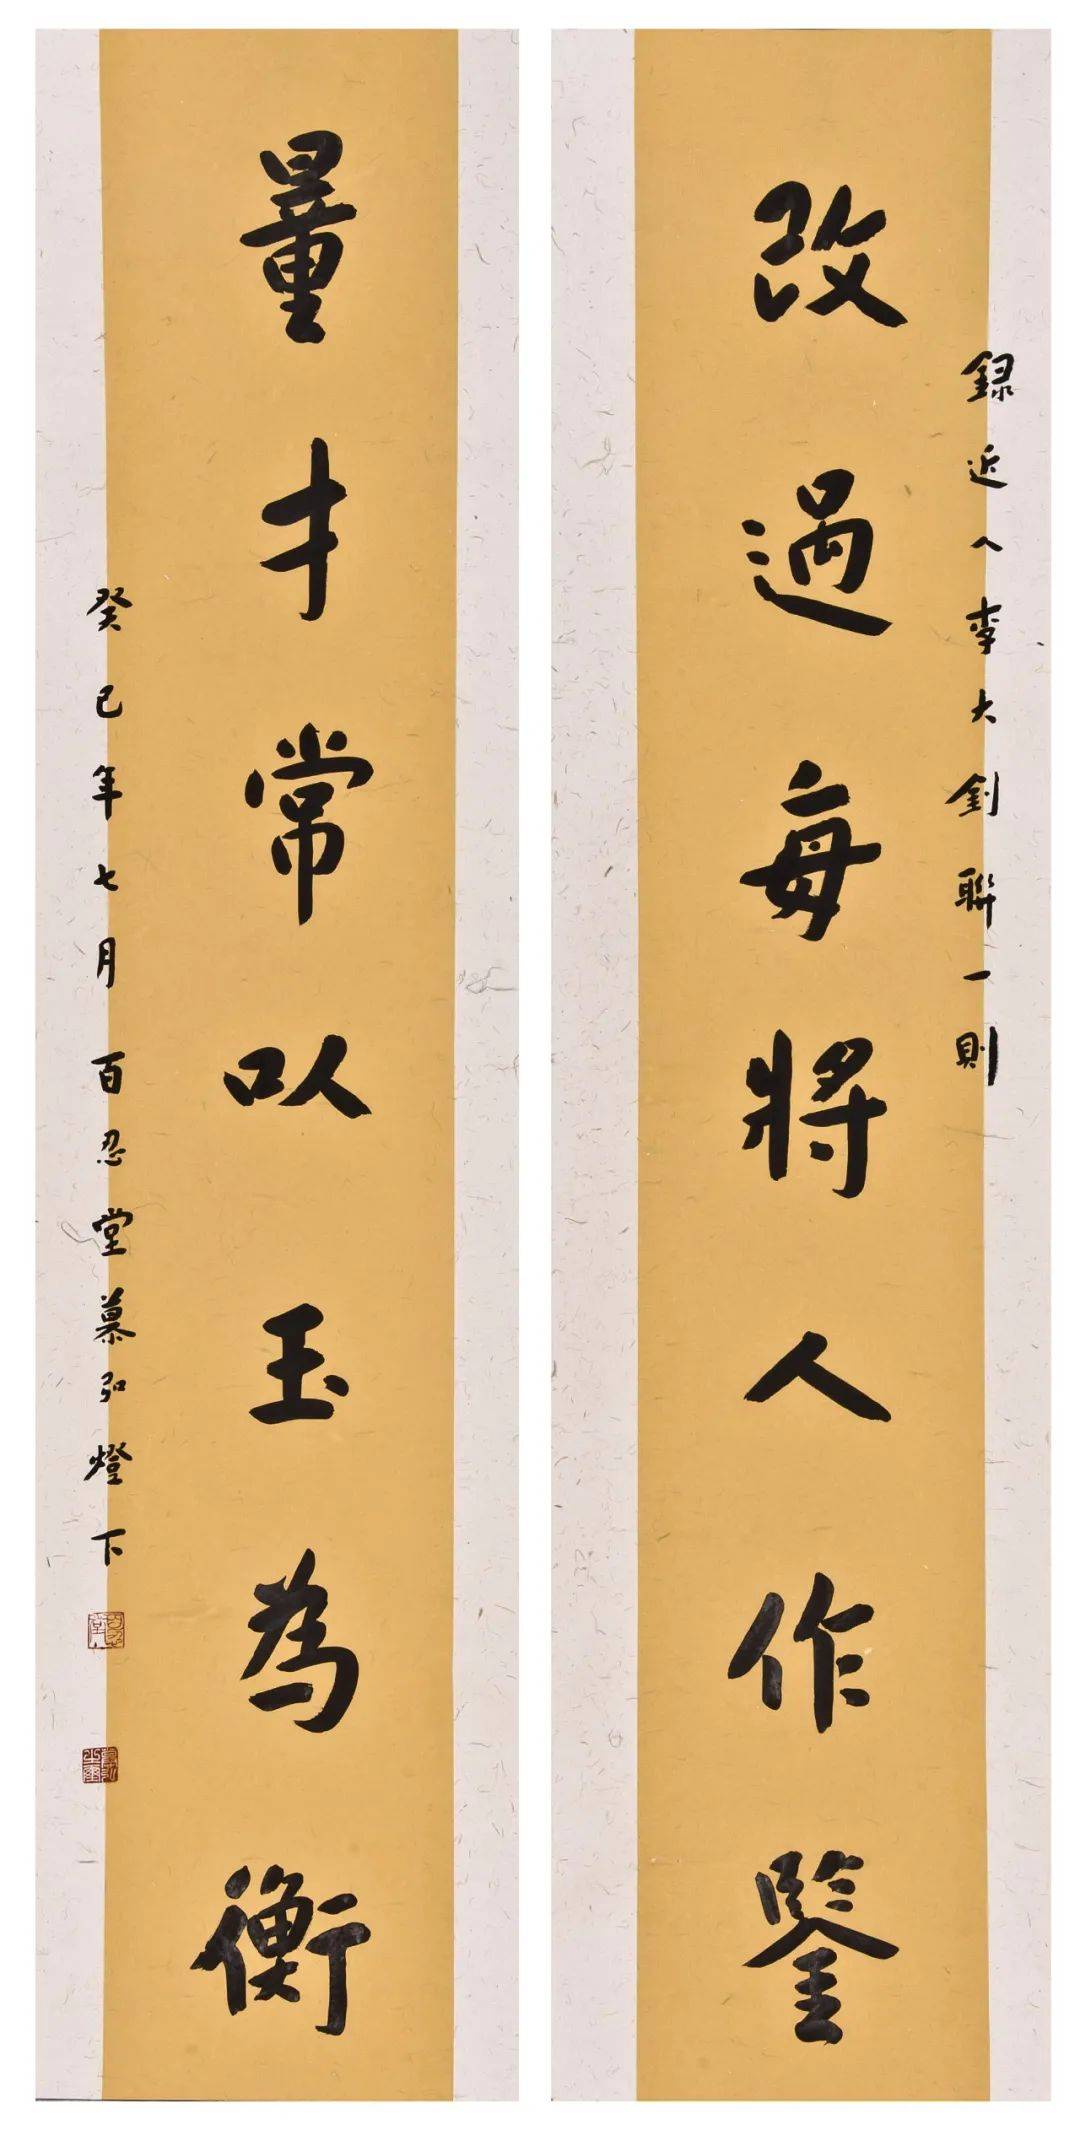 改過每將人作鑒
錄近人李大釗聯一則
量才常以玉為衡
癸巳年七月百忍堂慕弘燈下